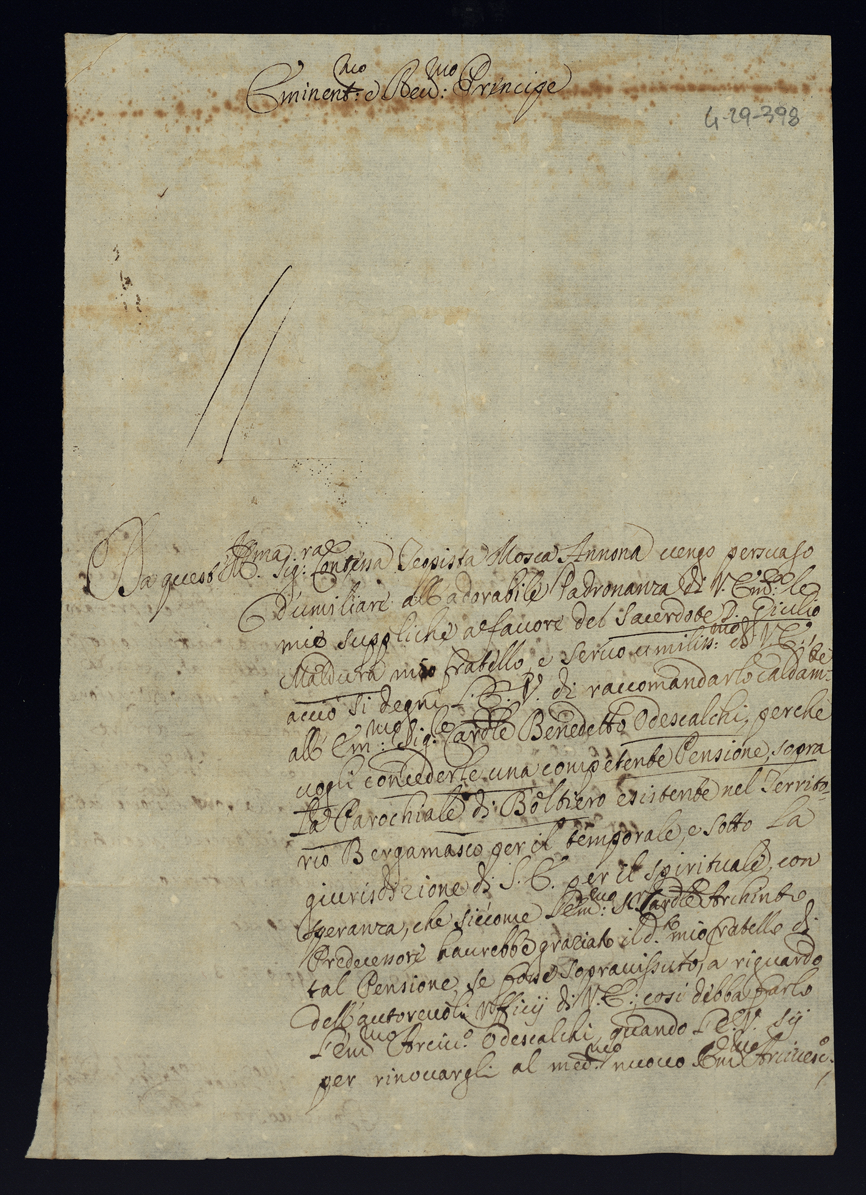 Eminent:mo e Reu:mo Principe
4-29-398
Da questa Ill.ma Sig:ra Contessa Teopista Mosca Annona uengo persuaso
d'umiliare all'adorabile Padronanza di V. Em.za le
mie suppliche a fauore del Sacerdote Giulio
Maldura mio fratello, e seruo umiliss:mo di V.E.,
acciò si degni l'E.V. di raccomandarlo caldam:te
all'Em:mo Sig:r Cardle Benedetto Odescalchi, perche
uogli concederle una competente Pensione, sopra
la Parochiale di Boltiero esistente nel Territo-
rio Bergamasco per il temporale, e sotto la
giurisdizione di S.E. per il spirituale, con
speranza, che siccome l'Em:mo S. Cardle Archinto
Predecessore haurebbe graziato il d.to mio fratello di
tal Pensione, se fosse soprauissuto, a riguardo
dell'autoreuoli Vfficij di V.E.; così debba farlo
l'Em:mo Arciu:o Odescalchi, quando l'E.V. sij
per rinouargli al med:mo nuouo Em:mo Arciuesc: